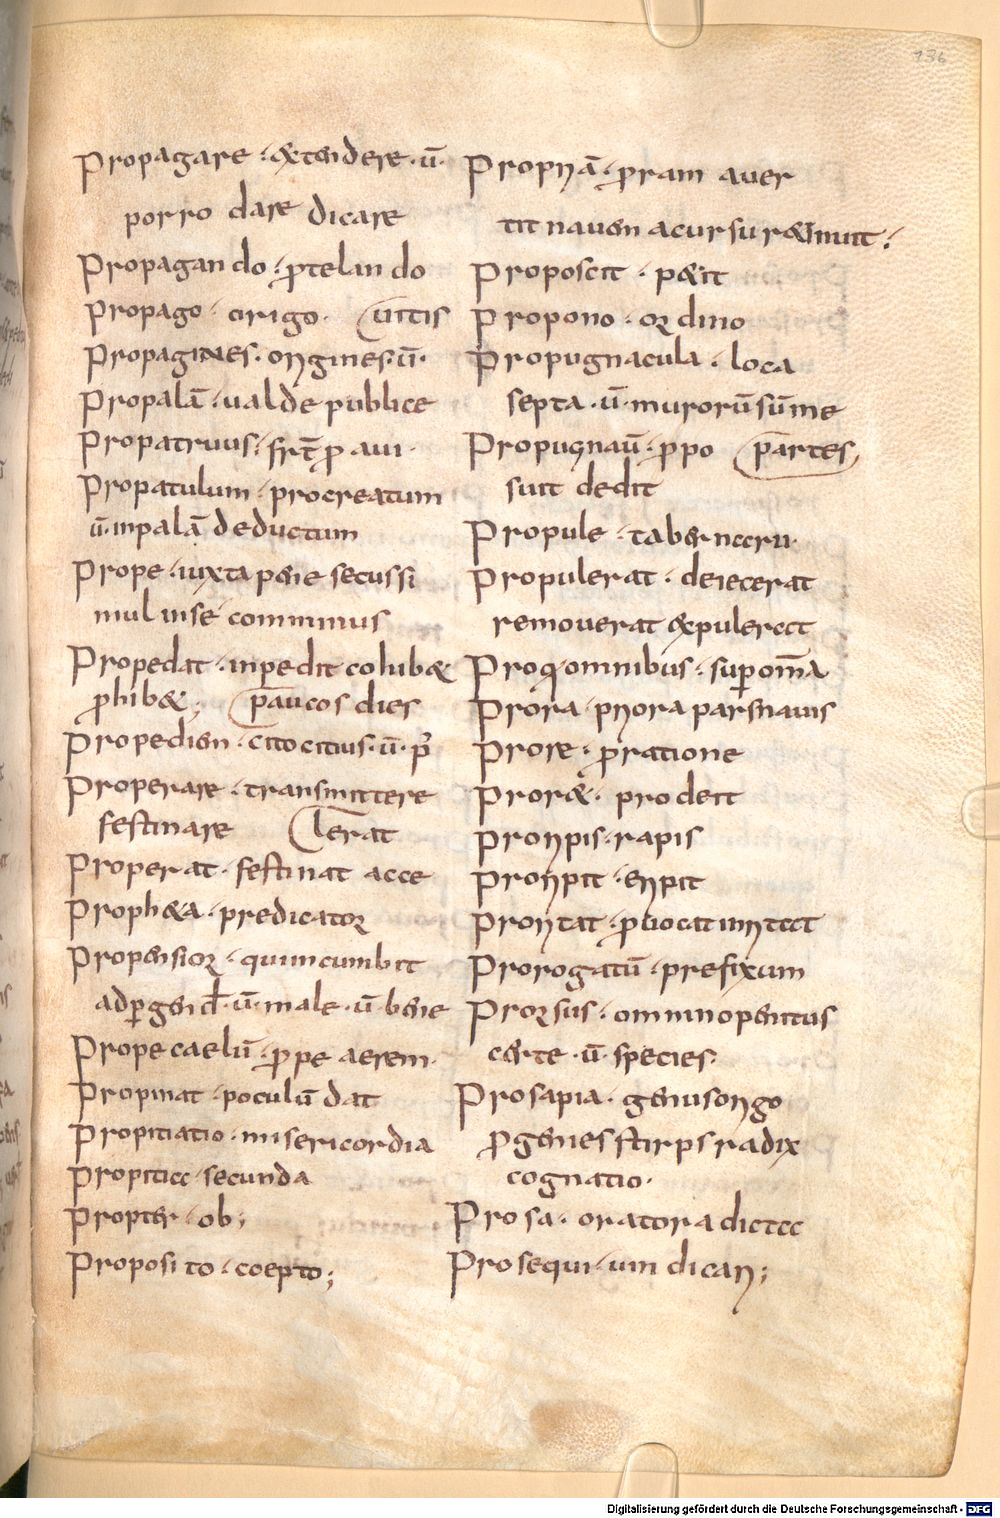 136
Propagare · extendere · ū ·
porro dare dicare
Propagando · ꝓtelando
Propago · origo · uitis
Propagines · origines ū ·
Propalā · ualde publice
Propatruus · frt̄ ꝓ aui ·
Propatulum · procreatum
ū · inpalā deductum
Prope · iuxta pene secus si
mul
Propedat · inpedit cohibet
ꝓhibet ; p̄ aucos dies
Propedien · cito citius · ū · p̄
Properare · transmittere
festinare lerat
Properat · festinat acce
Propheta · predicator
Propensior · qui incumbit
ad ꝑgend̄ · ū · male · ū · bene
Prope caelū · ꝓpe aerem ·
Propinat · poculū dat
Propitiatio · misericordia
Propitia · secunda
Propter · ob ;
Proposito · coepto ;
Propriā · ꝓram auer
tit nauen a cursu
Proposcit · petit
Propono · ordino
Propugnacula · loca
septa · ū · murorū sūme
Propugnaū · ꝓpo partes
suit dedit
Propule · tabernacru ·
Propulerat · deiecerat
remouerat expulerat
Proqomnibus · suꝑ om̄a
Prora · priora pars nauis
Prore · ꝓ ratione
Proret · prodeit
Proripis · rapis
Proripit · eripit
Proritat · ꝓuocat inritat
Prorogatū · prefixum
Prorsus · omnino penitus
certe · ū · species ·
Prosapia · genus origo
ꝓgenies stirps radix
cognatio ·
Prosa · oratora dicta
Prosequi · uin dicari ;
Digitalisierung gefördert durch die Deutsche Forschungsgemeinschaft - DFG